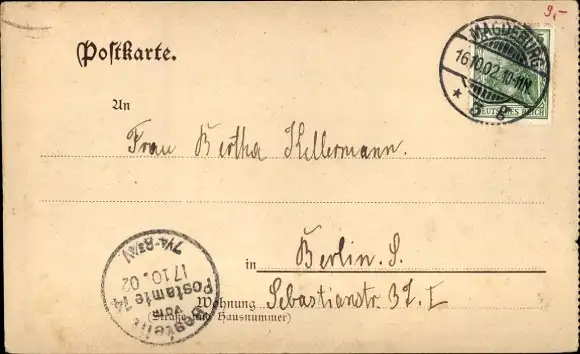 9,-
Postkarte.
MAGDEBURG
16.10.02.10-11V.
* 5 g
DEUTSCHES REICH
An
Frau Bertha Kellermann.
in Berlin. S.
Wohnung Sebastianstr. 32. I
(Straße und Hausnummer)
Bestellt
vom
Postamte 14
17.10.02
7¼-8¾V